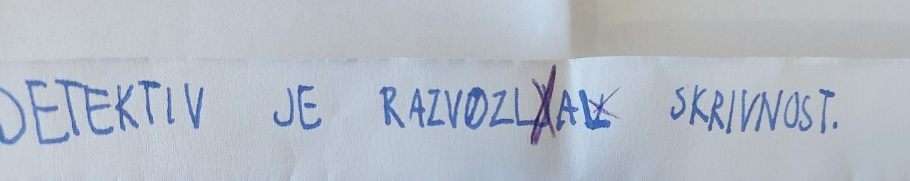 DETEKTIV JE RAZVOZLAL SKRIVNOST.